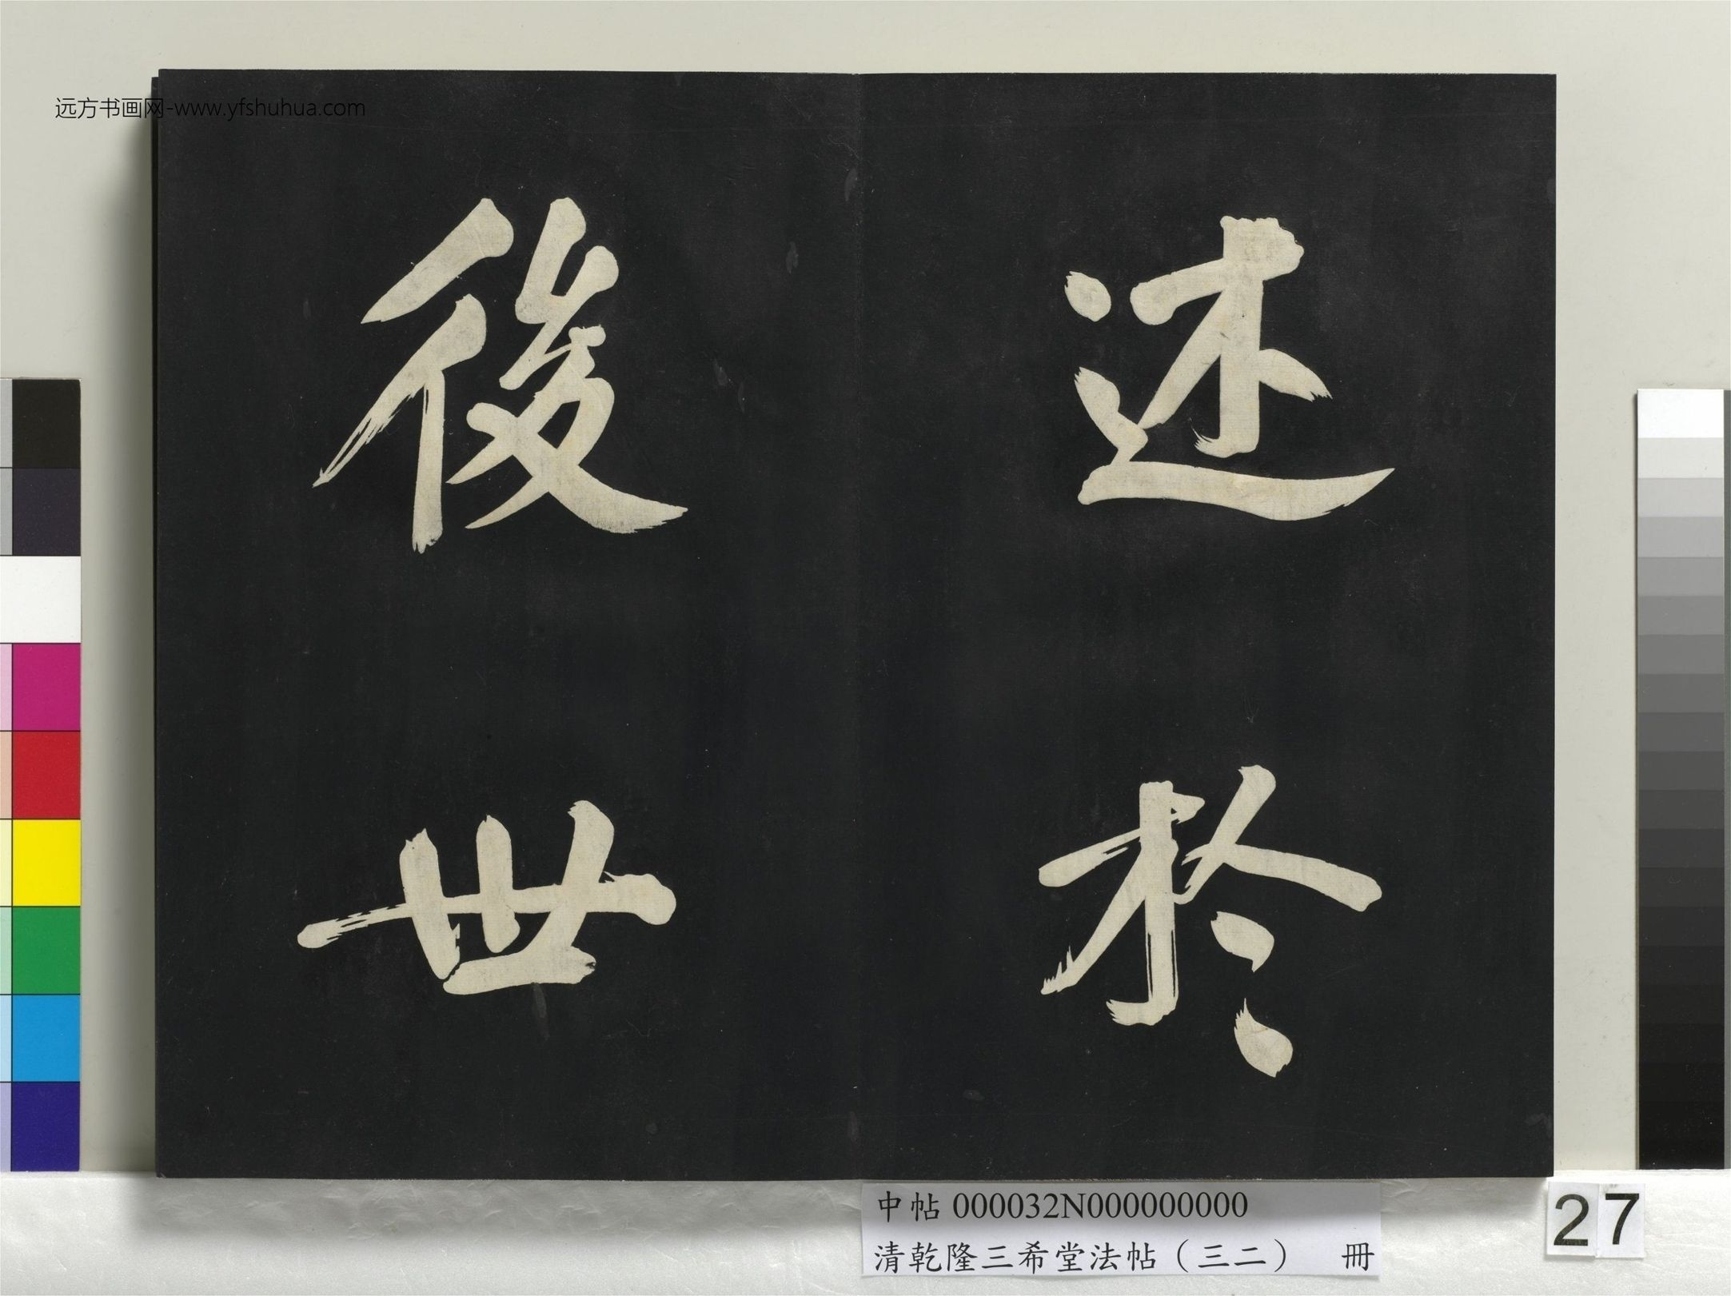 远方书画网-www.yfshuhua.com
述於
後世
中帖 000032N000000000
清乾隆三希堂法帖（三二） 冊
27